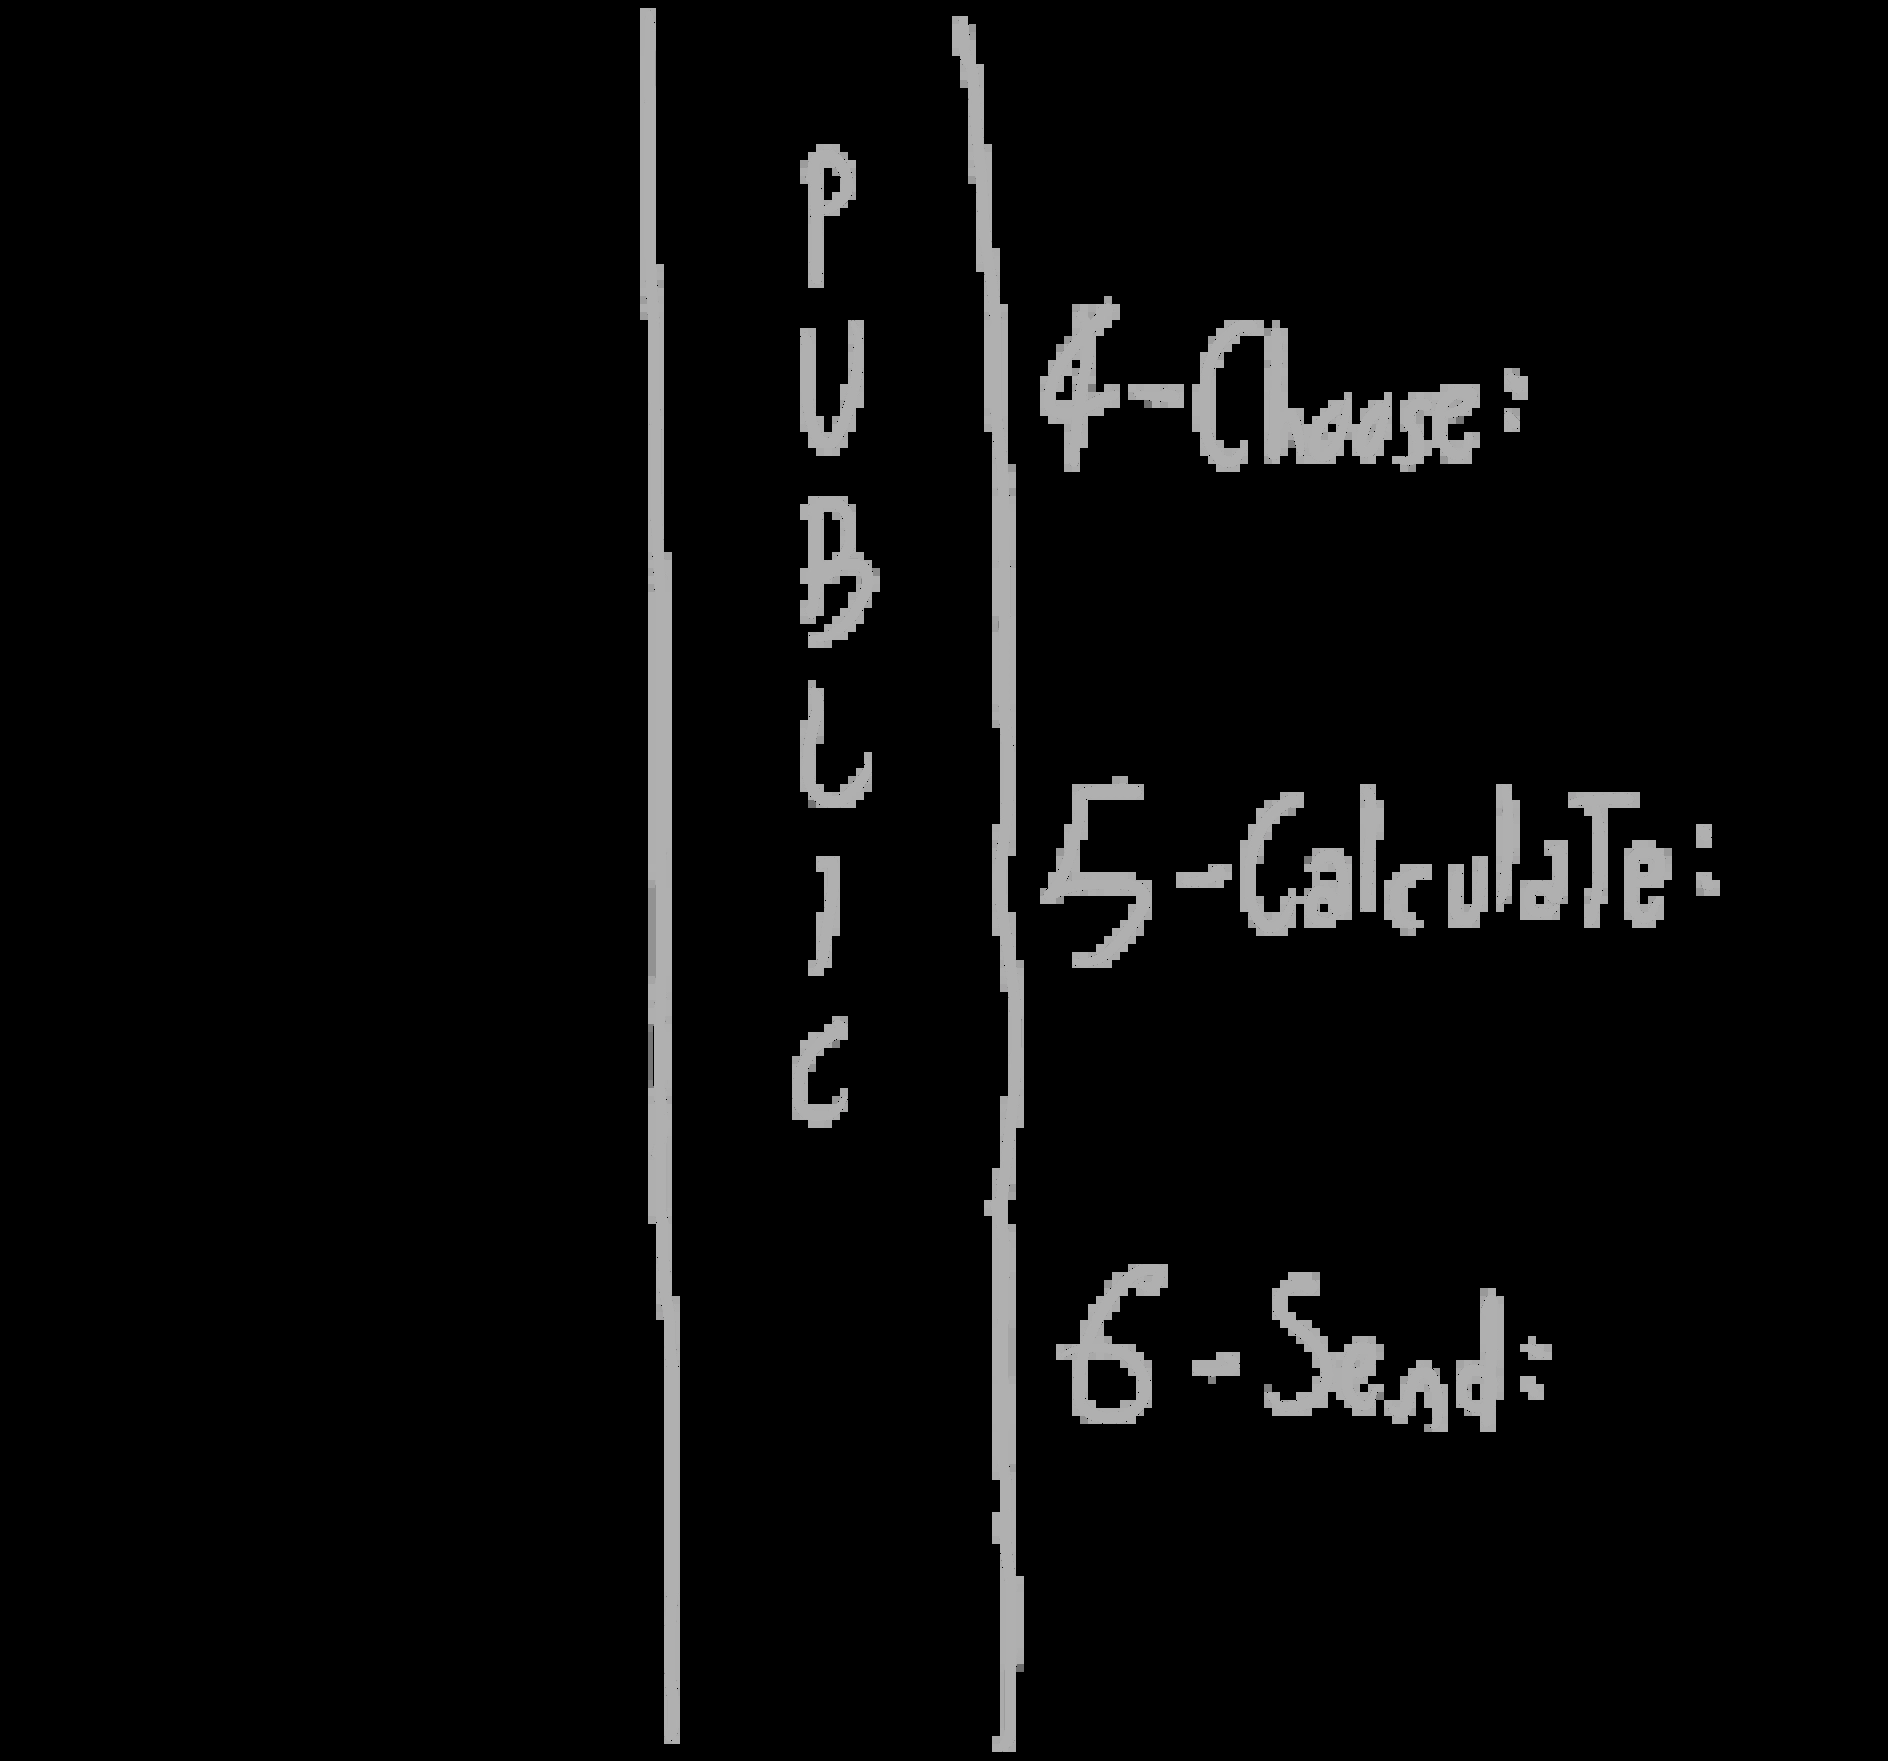 PUBLIC
4-Choose:
5-CalculaTe:
6-Send: